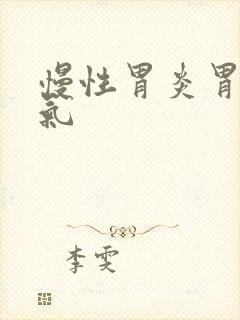 慢性胃炎胃
氣
李雯